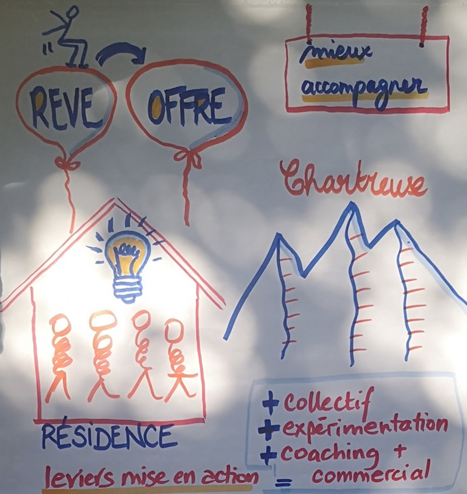 REVE
OFFRE
mieux
accompagner
Chartreuse
RÉSIDENCE
+ collectif
+ expérimentation
+ coaching +
leviers mise en action = commercial